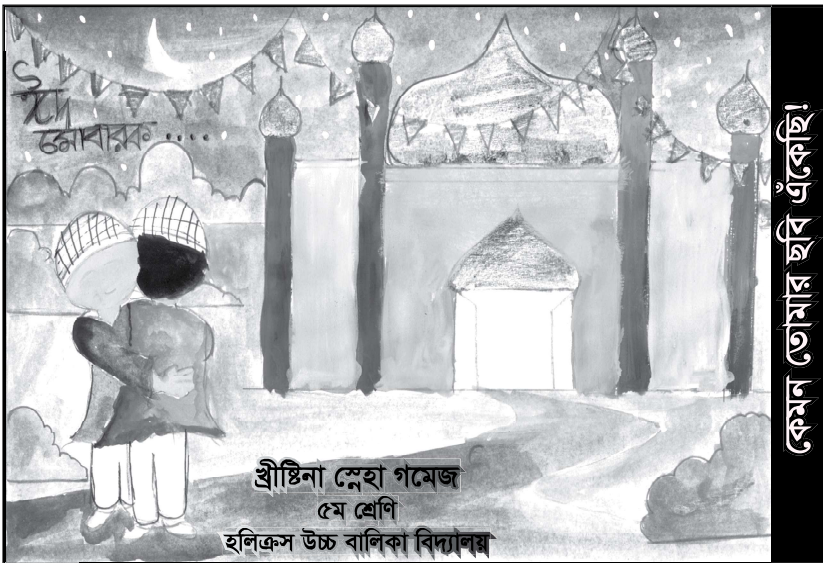 ঈদ
মোবারক ....
খ্রীষ্টিনা স্নেহা গমেজ
৫ম শ্রেণি
হলিক্রস উচ্চ বালিকা বিদ্যালয়
কেমন তোমার ছবি এঁকেছি!